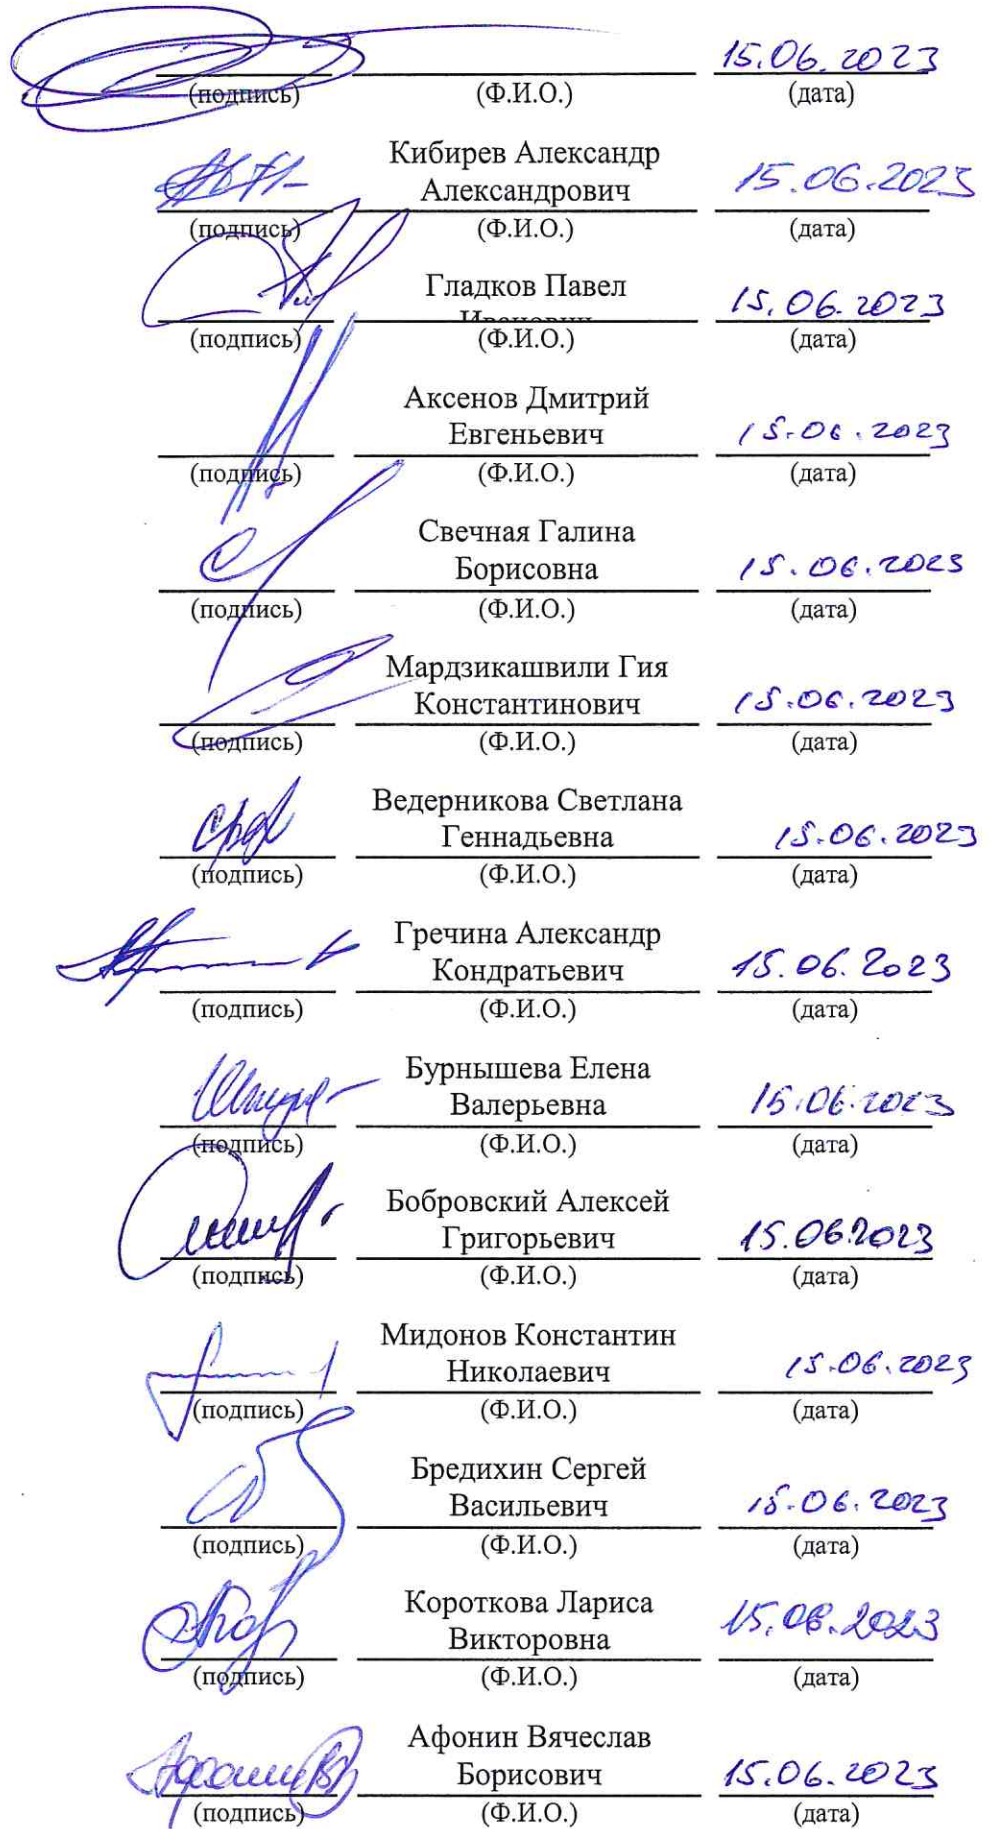 15.06.2023
(подпись) (Ф.И.О.) (дата)
Кибирев Александр
Александрович 15.06.2023
(подпись) (Ф.И.О.) (дата)
Гладков Павел
Иванович 15.06.2023
(подпись) (Ф.И.О.) (дата)
Аксенов Дмитрий
Евгеньевич 15.06.2023
(подпись) (Ф.И.О.) (дата)
Свечная Галина
Борисовна 15.06.2023
(подпись) (Ф.И.О.) (дата)
Мардзикашвили Гия
Константинович 15.06.2023
(подпись) (Ф.И.О.) (дата)
Ведерникова Светлана
Геннадьевна 15.06.2023
(подпись) (Ф.И.О.) (дата)
Гречина Александр
Кондратьевич 15.06.2023
(подпись) (Ф.И.О.) (дата)
Бурнышева Елена
Валерьевна 15.06.2023
(подпись) (Ф.И.О.) (дата)
Бобровский Алексей
Григорьевич 15.06.2023
(подпись) (Ф.И.О.) (дата)
Мидонов Константин
Николаевич 15.06.2023
(подпись) (Ф.И.О.) (дата)
Бредихин Сергей
Васильевич 15.06.2023
(подпись) (Ф.И.О.) (дата)
Короткова Лариса
Викторовна 15.06.2023
(подпись) (Ф.И.О.) (дата)
Афонин Вячеслав
Борисович 15.06.2023
(подпись) (Ф.И.О.) (дата)